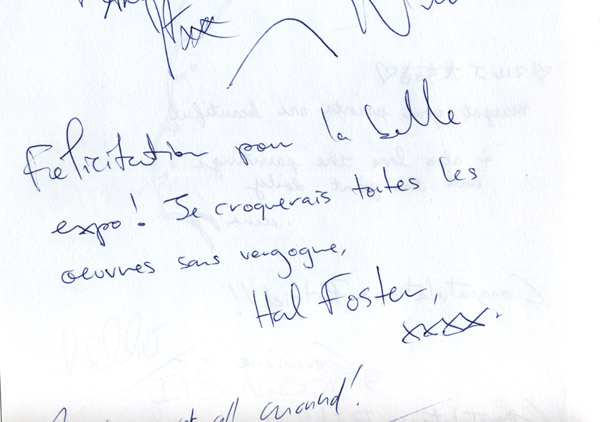 Félicitation pour la belle
expo! Je croquerais toutes les
oeuvres sans vergogne,
Hal Foster,
xxxx.
all around!